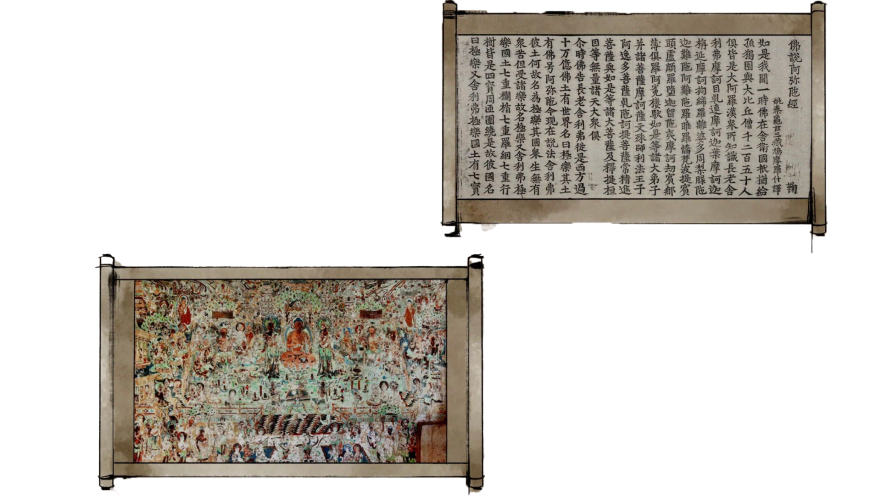 佛說阿弥陁經 鞠
姚秦龜茲三藏鳩摩羅什譯
如是我聞一時佛在舍衛國祇樹給
孤獨園與大比丘僧千二百五十人
俱皆是大阿羅漢衆所知識長老舍
利弗摩訶目乹連摩訶迦葉摩訶迦
栴延摩訶拘絺羅離婆多周梨槃陁
迦難陁阿難陁羅睺羅憍梵波提賓
頭盧頗羅墮迦留陁夷摩訶劫賓那
薄俱羅阿㝹樓馱如是等諸大弟子
并諸菩薩摩訶薩文殊師利法王子
阿逸多菩薩乹陁訶提菩薩常精進
菩薩與如是等諸大菩薩及釋提桓
因等無量諸天大衆俱
尒時佛告長老舍利弗從是西方過
十万億佛土有世界名曰極樂其土
有佛号阿弥陁今現在說法舍利弗
彼土何故名為極樂其國衆生無有
衆苦但受諸樂故名極樂又舍利弗極
樂國土七重欄楯七重羅網七重行
樹皆是四寶周匝圍繞是故彼國名
曰極樂又舍利弗極樂國土有七寶